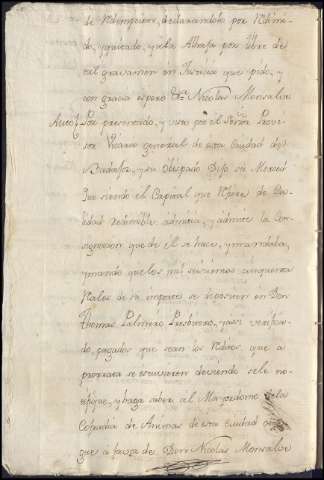 de Redempcion, declarandolo por Redimi-
do, y quitado, y a la Alhaja por libre de
tal gravamen en Justicia que pido, y
con gracia espero Dn. Nicolas Monsalve
Auto Por presentado, y visto por el Señor Provi-
sor Vicario general de esta Ciudad de
Badajoz, y su Obispado Dijo su Merced
que siendo el Capital que de Ca-
lidad redimible admitia, y admite la Con-
signacion que de el se hace, y mandaba,
y mando que los mil seiscientos cinquenta
Reales de su importe se depositen en Don
Thomas Palmero Presbitero, y asi verifica-
do, pagados que sean los Reditos, que a
prorrata se estuvieren deviendo se le no-
tifique, y haga saber al Mayordomo de la
Cofradia de Animas de esta ciudad
que a favor de Don Nicolas Monsalve